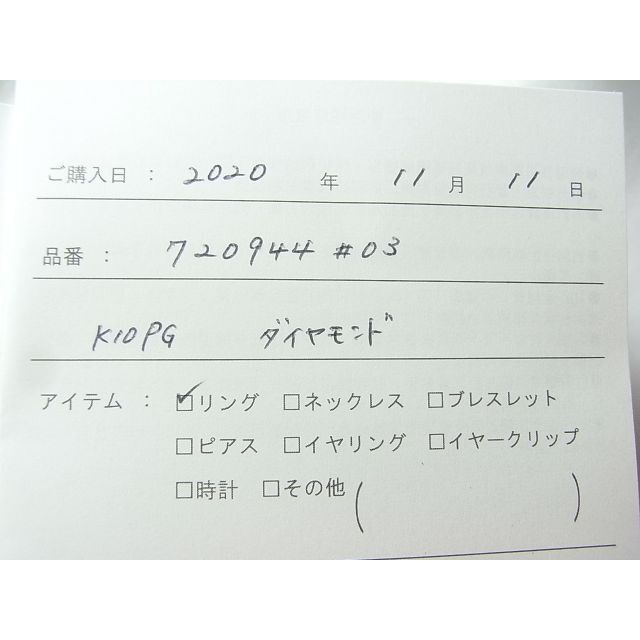 ご購入日 : 2020 年 11 月 11 日
品番 : 720944 #03
K10PG ダイヤモンド
アイテム : ☑リング □ネックレス □ブレスレット
□ピアス □イヤリング □イヤークリップ
□時計 □その他 ( )